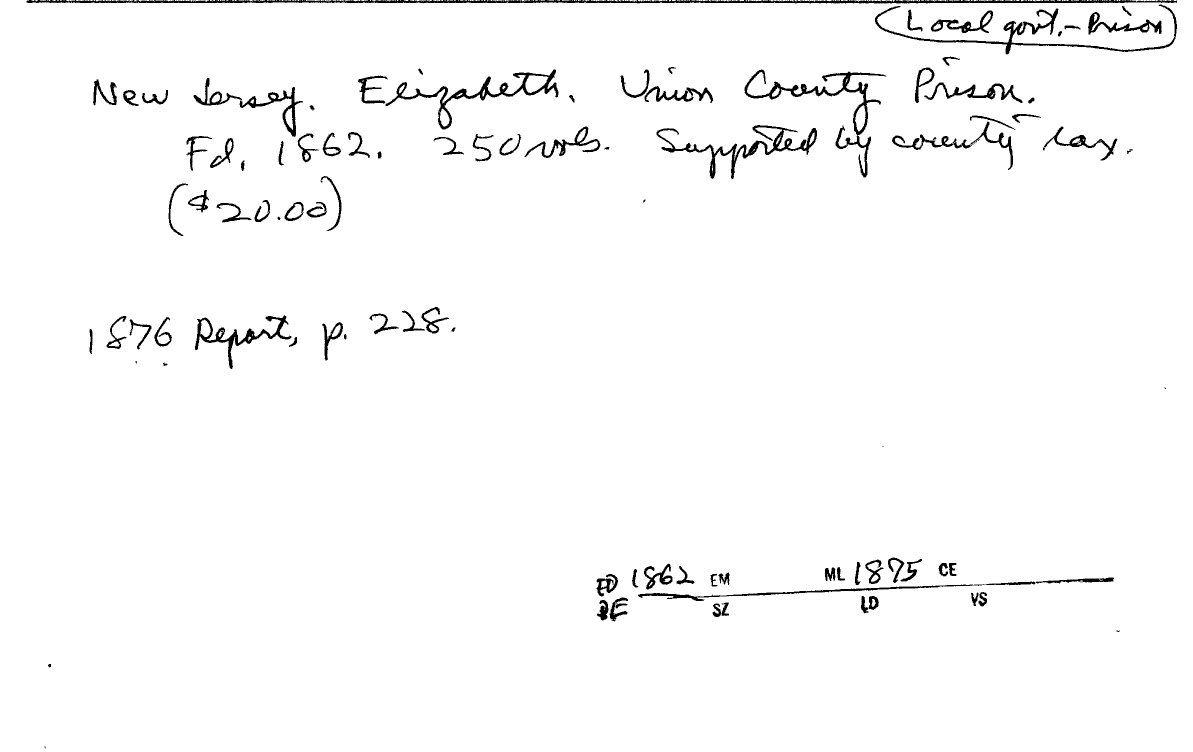 (Local gov't.-Prison)
New Jersey. Elizabeth. Union County Prison.
Fd. 1862. 250 vols. Supported by county tax.
($20.00)
1876 Report, p. 228.
ED 1862 EM ML 1875 CE
SZ LD VS